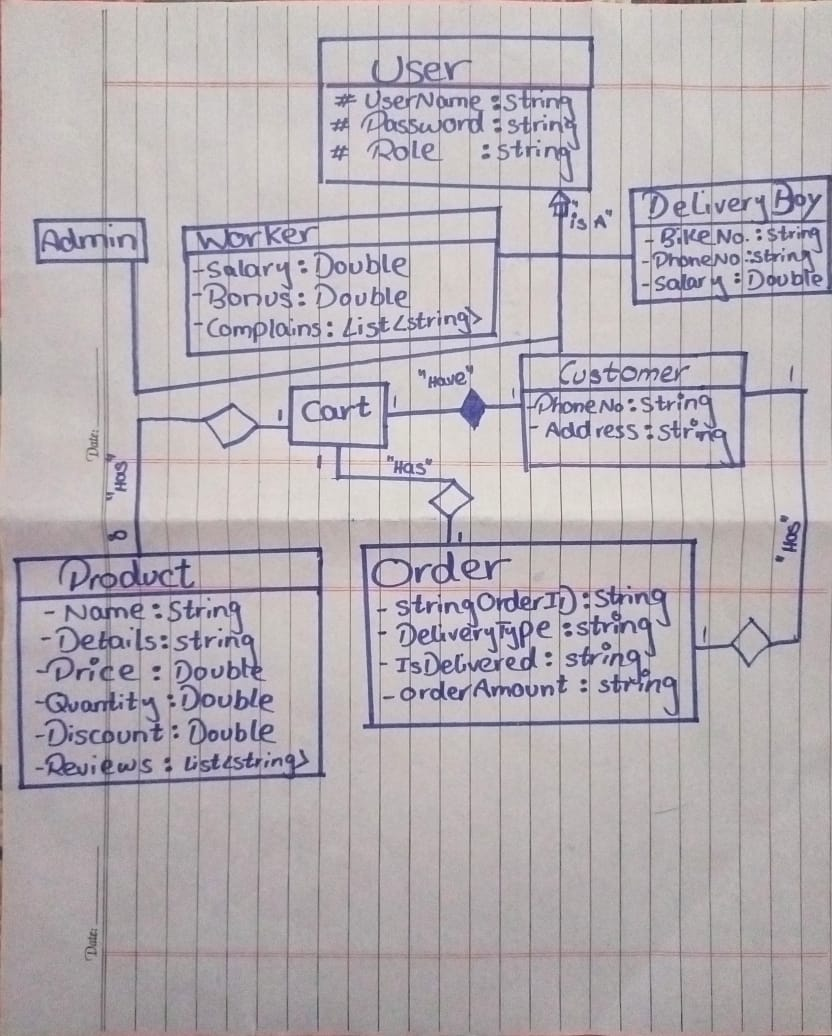 User
# UserName : String
# Password : string
# Role : string
Admin
Worker
- Salary : Double
- Bonus : Double
- Complains : List<string>
"is A"
Delivery Boy
- Bike No. : String
- PhoneNo : string
- Salary : Double
Customer
- PhoneNo : String
- Address : string
Cart
1
"Have"
1
1
1
"Has"
1
"Has"
8
1
"Has"
1
Product
- Name : String
- Details : string
- Price : Double
- Quantity : Double
- Discount : Double
- Reviews : List<string>
Order
- StringOrderID : String
- DeliveryType : string
- IsDelivered : string
- OrderAmount : string
Date:
Date: